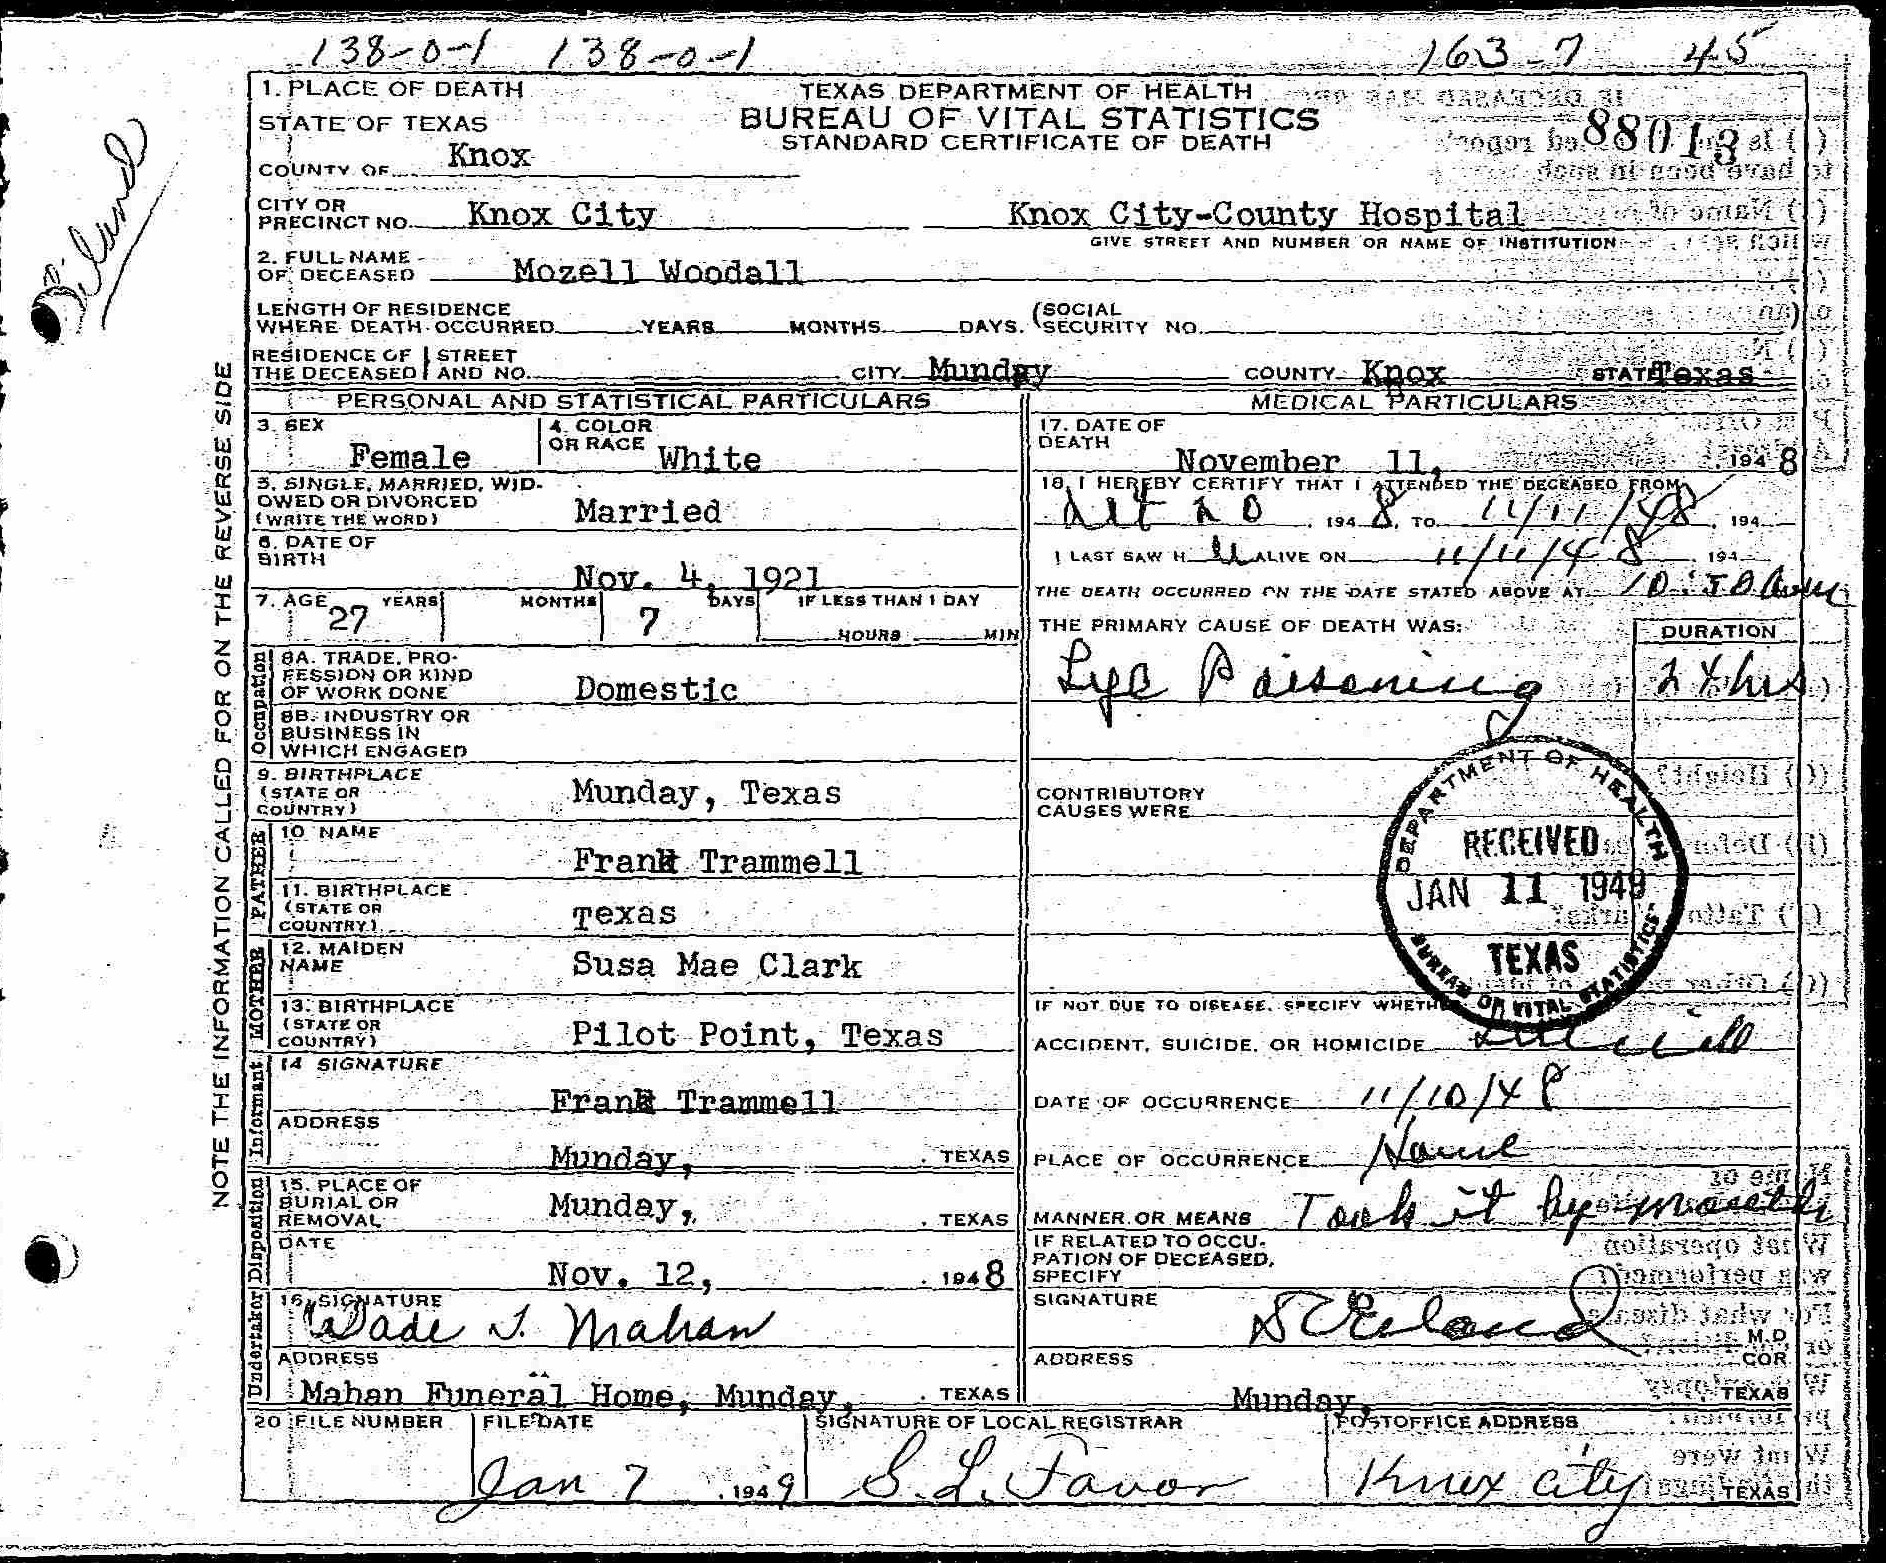 138-0-1 138-0-1 163-7 45
1. PLACE OF DEATH
STATE OF TEXAS
COUNTY OF Knox
TEXAS DEPARTMENT OF HEALTH
BUREAU OF VITAL STATISTICS
STANDARD CERTIFICATE OF DEATH
88013
Eiland
CITY OR
PRECINCT NO. Knox City Knox City-County Hospital
GIVE STREET AND NUMBER OR NAME OF INSTITUTION
2. FULL NAME
OF DECEASED Mozell Woodall
LENGTH OF RESIDENCE
WHERE DEATH OCCURRED YEARS MONTHS DAYS. (SOCIAL
SECURITY NO. )
RESIDENCE OF THE DECEASED STREET AND NO. CITY Munday COUNTY Knox STATE Texas
NOTE THE INFORMATION CALLED FOR ON THE REVERSE SIDE
PERSONAL AND STATISTICAL PARTICULARS
3. SEX
Female
4. COLOR
OR RACE White
5. SINGLE, MARRIED, WID-
OWED OR DIVORCED
(WRITE THE WORD) Married
6. DATE OF
BIRTH Nov. 4, 1921
7. AGE YEARS MONTHS DAYS IF LESS THAN 1 DAY
27 7 HOURS MIN
Occupation
8A. TRADE, PRO-
FESSION OR KIND
OF WORK DONE Domestic
8B. INDUSTRY OR
BUSINESS IN
WHICH ENGAGED
9. BIRTHPLACE
(STATE OR
COUNTRY) Munday, Texas
FATHER
10 NAME
Frank Trammell
11. BIRTHPLACE
(STATE OR
COUNTRY) Texas
MOTHER
12. MAIDEN
NAME Susa Mae Clark
13. BIRTHPLACE
(STATE OR
COUNTRY) Pilot Point, Texas
Informant
14 SIGNATURE
Frank Trammell
ADDRESS
Munday, TEXAS
Undertaker Disposition
15. PLACE OF
BURIAL OR
REMOVAL Munday, TEXAS
DATE
Nov. 12, 1948
16. SIGNATURE
Wade T. Mahan
ADDRESS
Mahan Funeral Home, Munday, TEXAS
MEDICAL PARTICULARS
17. DATE OF
DEATH November 11, 1948
18. I HEREBY CERTIFY THAT I ATTENDED THE DECEASED FROM
1948, TO 11/11/48, 194
I LAST SAW H ALIVE ON 11/11/48 194
THE DEATH OCCURRED ON THE DATE STATED ABOVE AT
THE PRIMARY CAUSE OF DEATH WAS: DURATION
Lye Poisoning 24 hrs
CONTRIBUTORY
CAUSES WERE
DEPARTMENT OF HEALTH
RECEIVED
JAN 11 1949
TEXAS
BUREAU OF VITAL STATISTICS
IF NOT DUE TO DISEASE, SPECIFY WHETH
ACCIDENT, SUICIDE, OR HOMICIDE Suicide
DATE OF OCCURRENCE 11/10/48
PLACE OF OCCURRENCE Home
MANNER OR MEANS Took it by mouth
IF RELATED TO OCCU-
PATION OF DECEASED,
SPECIFY
SIGNATURE
Eiland M.D.
COR
ADDRESS
Munday, TEXAS
20 FILE NUMBER FILE DATE SIGNATURE OF LOCAL REGISTRAR POSTOFFICE ADDRESS
Jan 7, 1949 S. L. Favor Knox City TEXAS